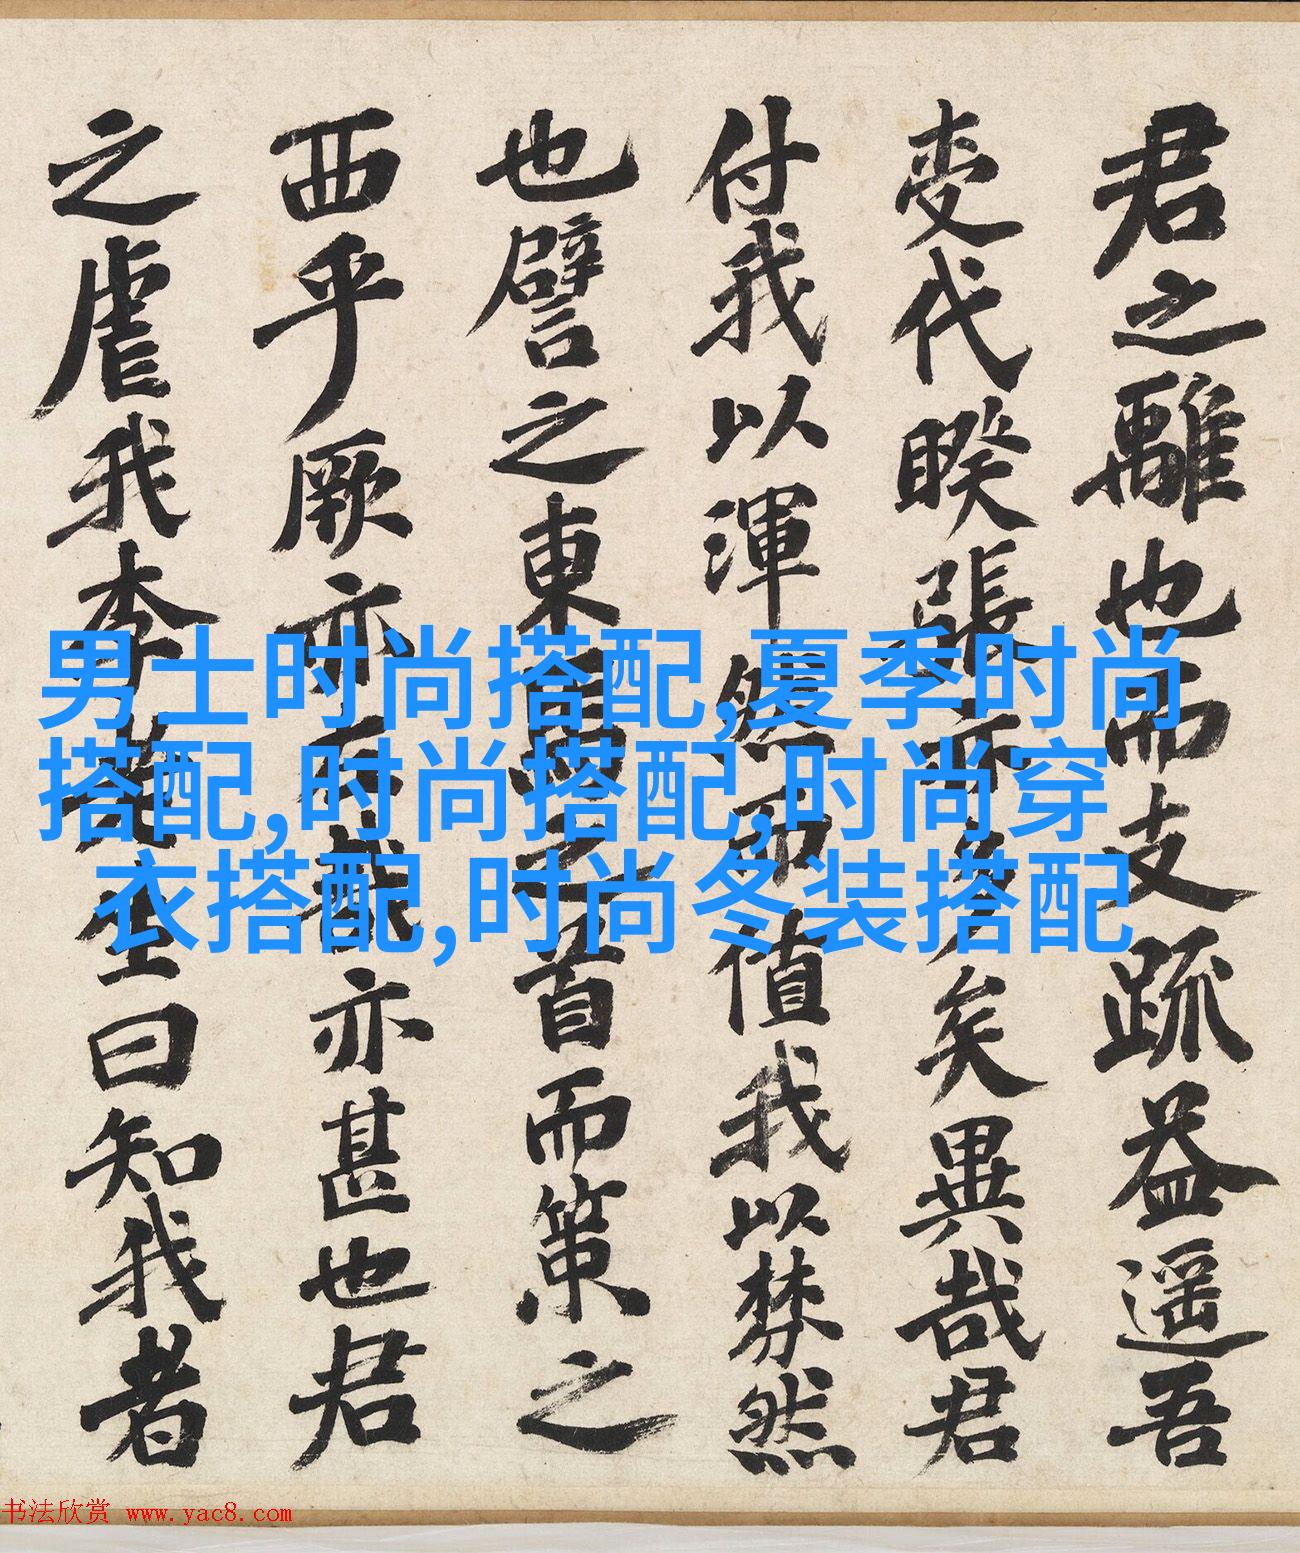 君之離也而支疏益遥吾
代睽張亦多矣異哉君
付我以渾然而值我以棼然
也譬之東之首而策之
西乎厥亦哉亦甚也君
之虐我李生曰知我者
男士时尚搭配,夏季时尚
搭配,时尚搭配,时尚穿
衣搭配,时尚冬装搭配
书法欣赏 www.yac8.com